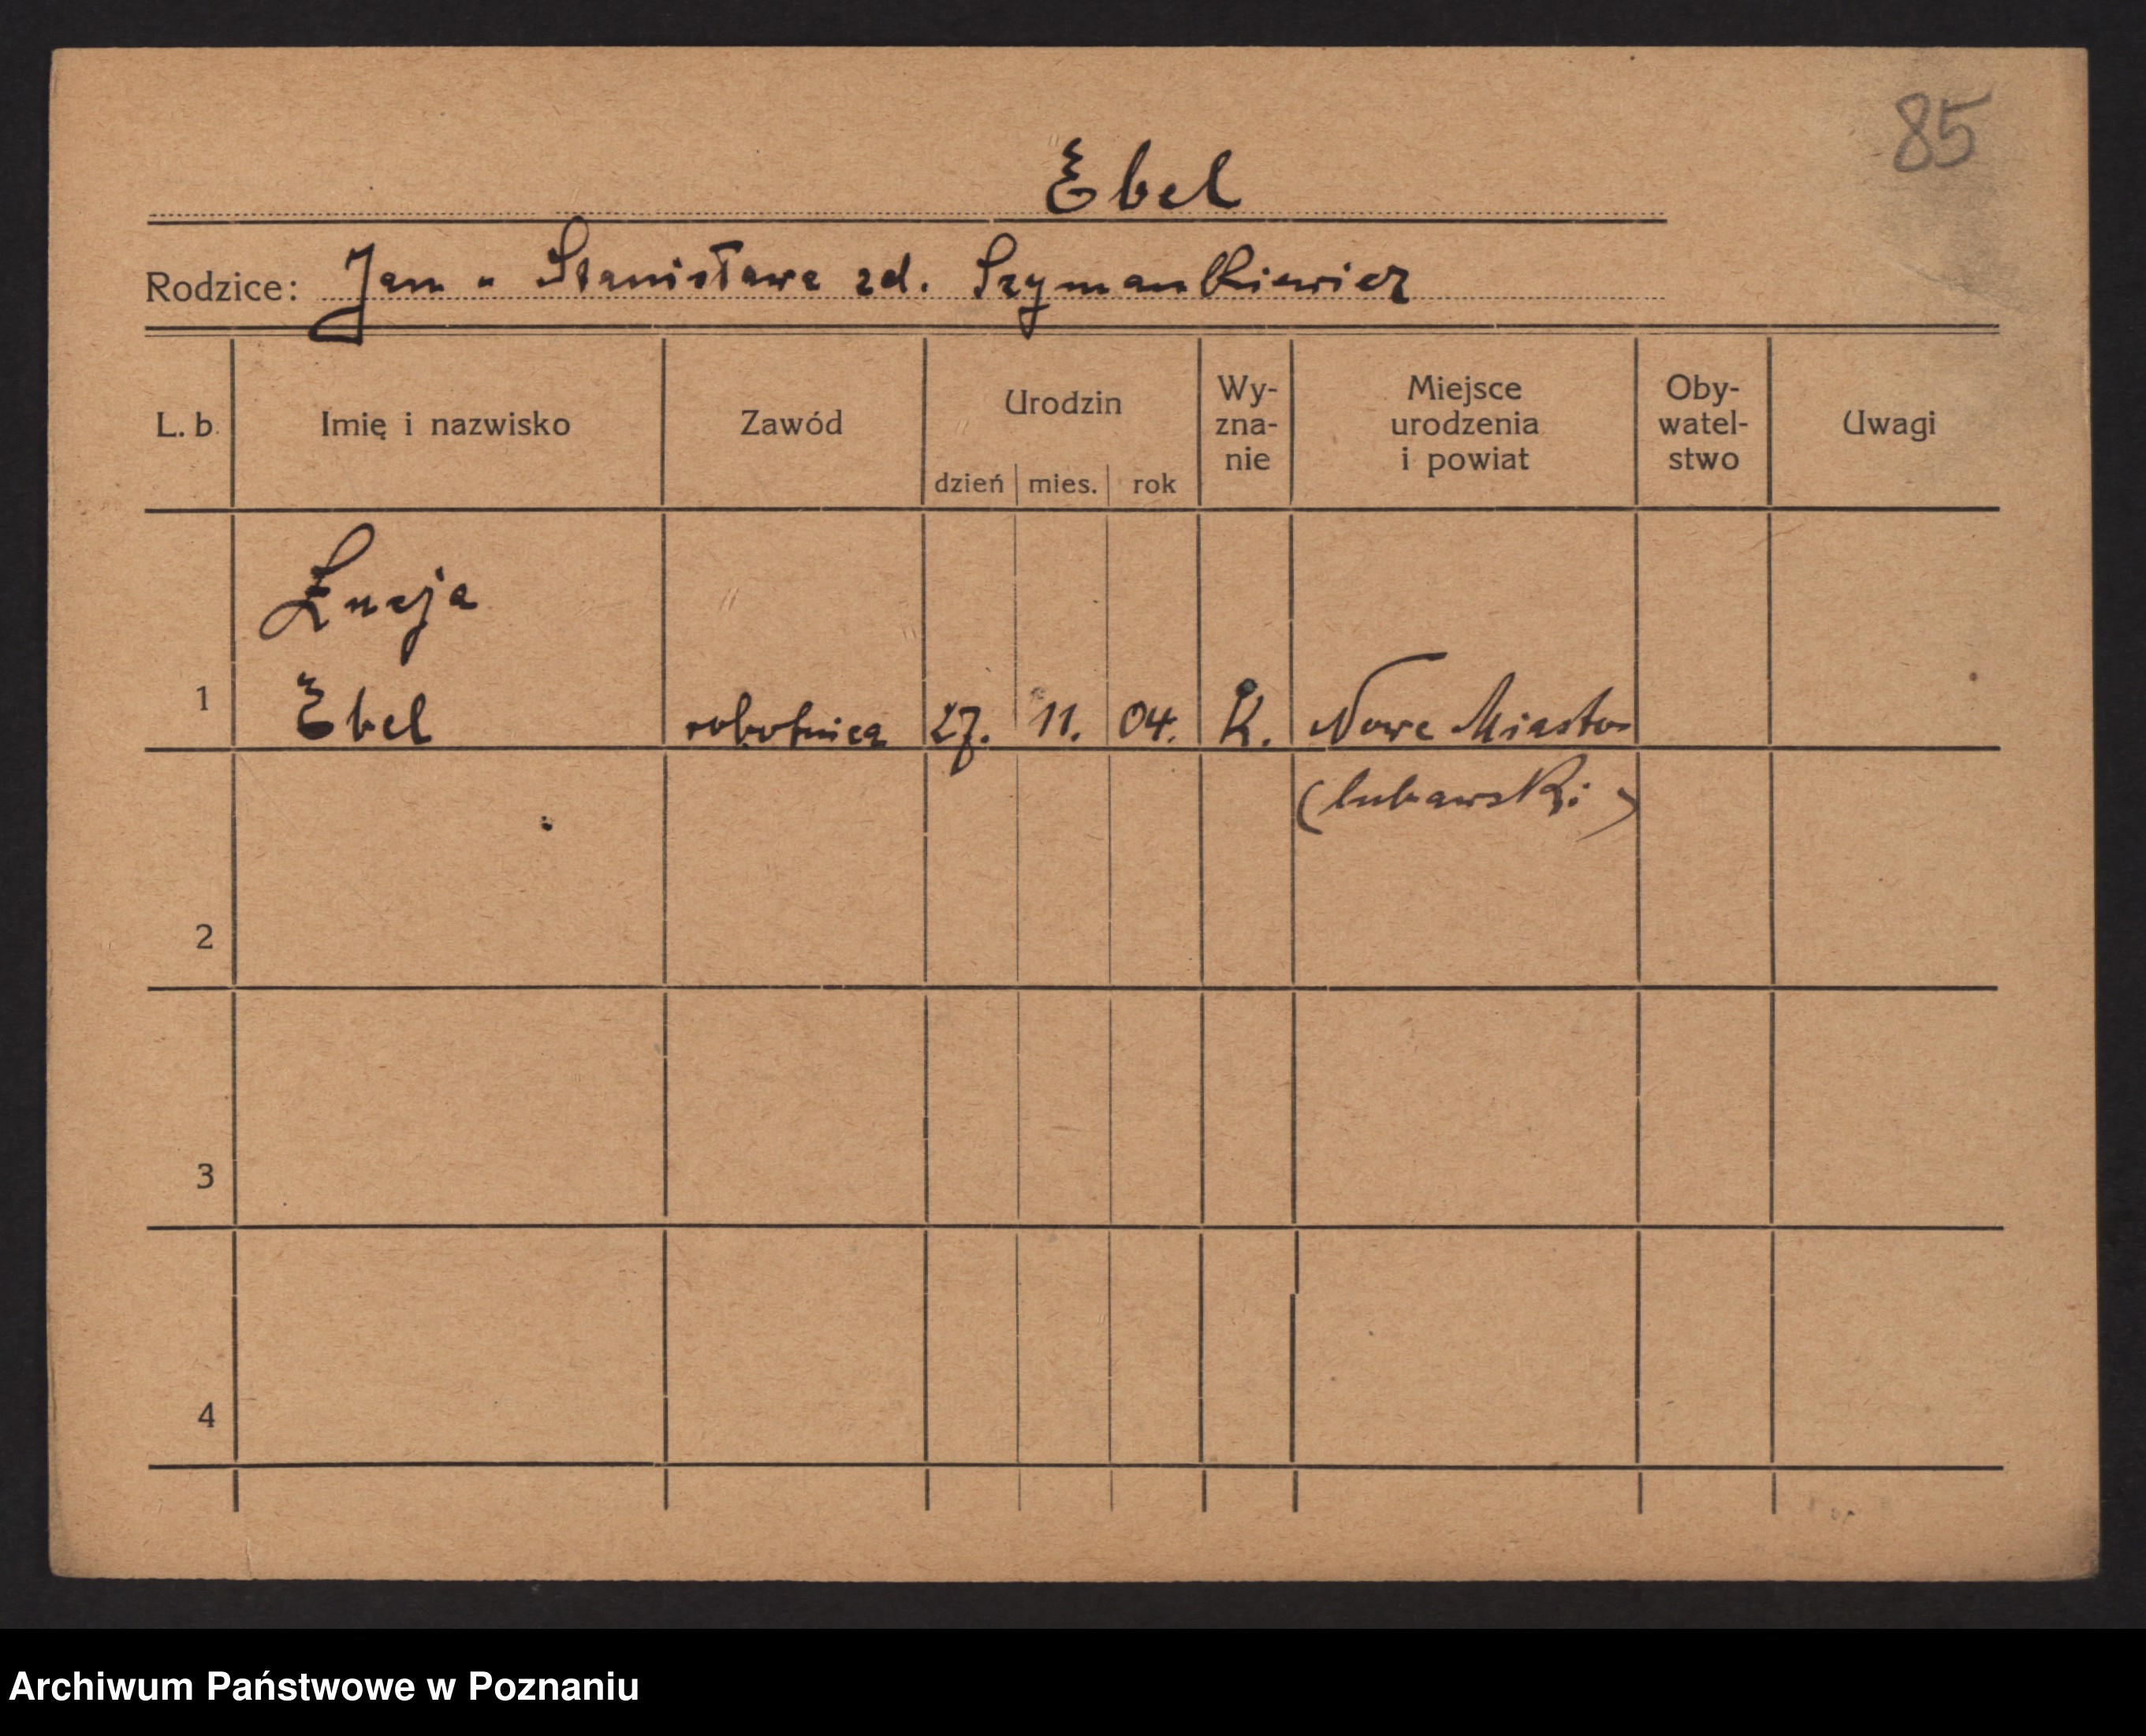 85
Ebel
Rodzice: Jan - Stanisława zd. Szymankiewicz
L. b. Imię i nazwisko Zawód Urodzin dzień mies. rok Wy-zna-nie Miejsce urodzenia i powiat Oby-watel-stwo Uwagi
Łucja
1 Ebel robotnica 27. 11. 04. K. Nowe Miasto
(lubawski)
2
3
4
Archiwum Państwowe w Poznaniu